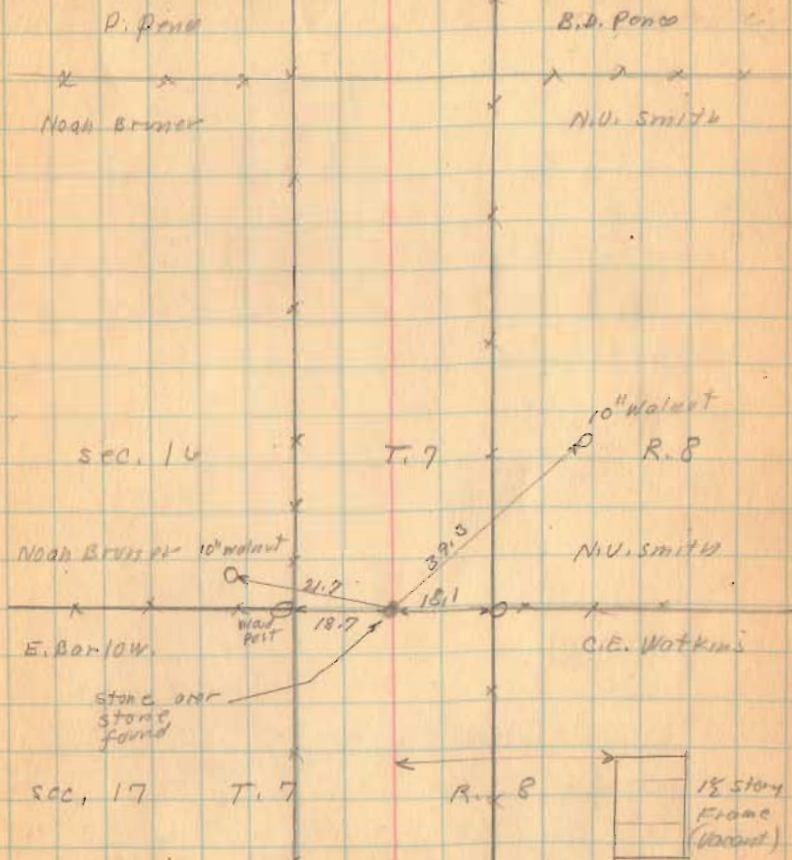 B.D. Ponco
Noah Bruner
N.U. Smith
10" Walnut
sec. 16 T. 7 R. 8
39.3
Noah Bruner 10" walnut
N.U. smith
21.7
18.1
18.7
post
E. Barlow.
C.E. Watkins
stone over
stone
found
sec, 17 T. 7 R. 8
Story
Frame
(Vacant)